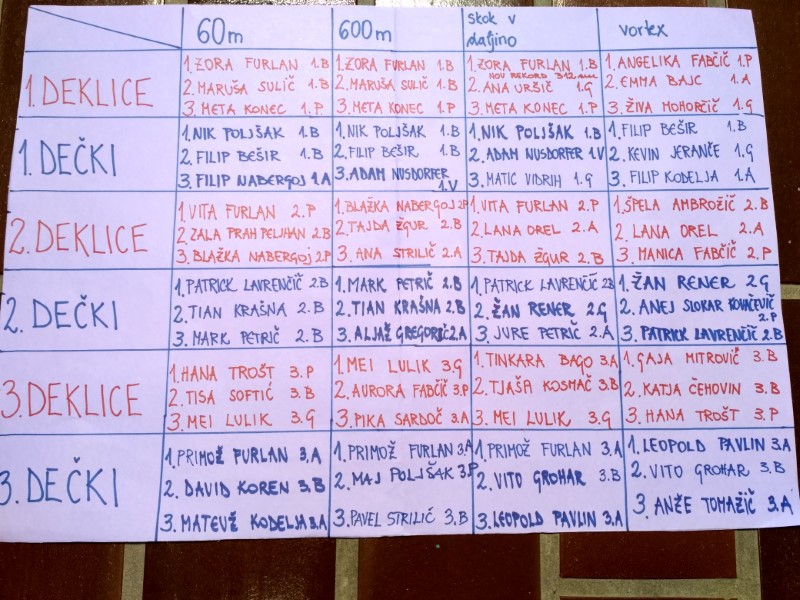 60m
600m
skok v
daljino
vortex
1. DEKLICE
1. ZORA FURLAN 1.B
2. MARUŠA SULIČ 1.B
3. META KONEC 1.P
1. ZORA FURLAN 1.B
2. MARUŠA SULIČ 1.B
3. META KONEC 1.P
1. ZORA FURLAN 1.B
NOV REKORD 312 cm
2. ANA URŠIČ 1.G
3. META KONEC 1.P
1. ANGELIKA FABČIČ 1.P
2. EMMA BAJC 1.A
3. ŽIVA MOHORČIČ 1.G
1. DEČKI
1. NIK POLJŠAK 1.B
2. FILIP BEŠIR 1.B
3. FILIP NABERGOJ 1.A
1. NIK POLJŠAK 1.B
2. FILIP BEŠIR 1.B
3. ADAM NUSDORFER
1.V
1. NIK POLJŠAK 1.B
2. ADAM NUSDORFER 1.V
3. MATIC VIDRIH 1.G
1. FILIP BEŠIR 1.B
2. KEVIN JERANČE 1.G
3. FILIP KODELJA 1.A
2. DEKLICE
1. VITA FURLAN 2.P
2. ZALA PRAH PELJHAN 2.B
3. BLAŽKA NABERGOJ 2.P
1. BLAŽKA NABERGOJ 2.P
2. TAJDA ŽGUR 2.B
3. ANA STRILIČ 2.A
1. VITA FURLAN 2.P
2. LANA OREL 2.A
3. TAJDA ŽGUR 2.B
1. ŠPELA AMBROŽIČ 2.B
2. LANA OREL 2.A
3. MANICA FABČIČ 2.P
2. DEČKI
1. PATRICK LAVRENČIČ 2.B
2. TIAN KRAŠNA 2.B
3. MARK PETRIČ 2.B
1. MARK PETRIČ 2.B
2. TIAN KRAŠNA 2.B
3. ALJAŽ GREGORIČ 2.A
1. PATRICK LAVRENČIČ 2.B
2. ŽAN RENER 2.G
3. JURE PETRIČ 2.A
1. ŽAN RENER 2.G
2. ANEJ SLOKAR KOVAČEVIČ
2.P
3. PATRICK LAVRENČIČ 2.B
3. DEKLICE
1. HANA TROŠT 3.P
2. TISA SOFTIĆ 3.B
3. MEI LULIK 3.G
1. MEI LULIK 3.G
2. AURORA FABČIČ 3.P
3. PIKA SARDOČ 3.A
1. TINKARA BAGO 3.A
2. TJAŠA KOSMAČ 3.B
3. MEI LULIK 3.G
1. GAJA MITROVIČ 3.B
2. KATJA ČEHOVIN 3.B
3. HANA TROŠT 3.P
3. DEČKI
1. PRIMOŽ FURLAN 3.A
2. DAVID KOREN 3.B
3. MATEVŽ KODELJA 3.A
1. PRIMOŽ FURLAN 3.A
2. MAJ POLJŠAK 3.P
3. PAVEL STRILIČ 3.B
1. PRIMOŽ FURLAN 3.A
2. VITO GROHAR 3.B
3. LEOPOLD PAVLIN 3.A
1. LEOPOLD PAVLIN 3.A
2. VITO GROHAR 3.B
3. ANŽE TOMAŽIČ 3.A